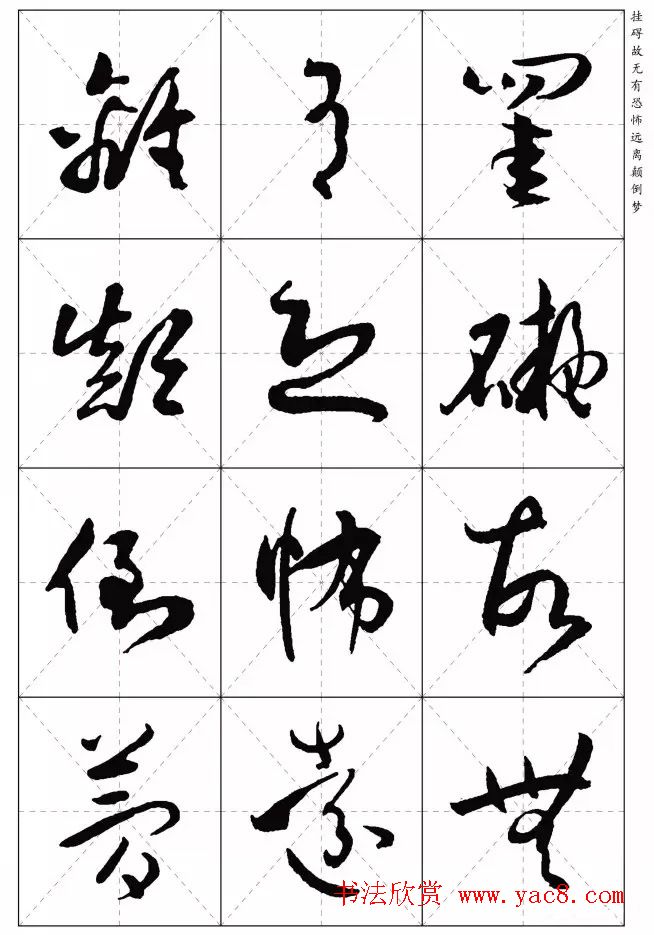 挂碍故无有恐怖远离颠倒梦
罣礙故無
有恐怖遠
離顛倒夢
书法欣赏 www.yac8.com